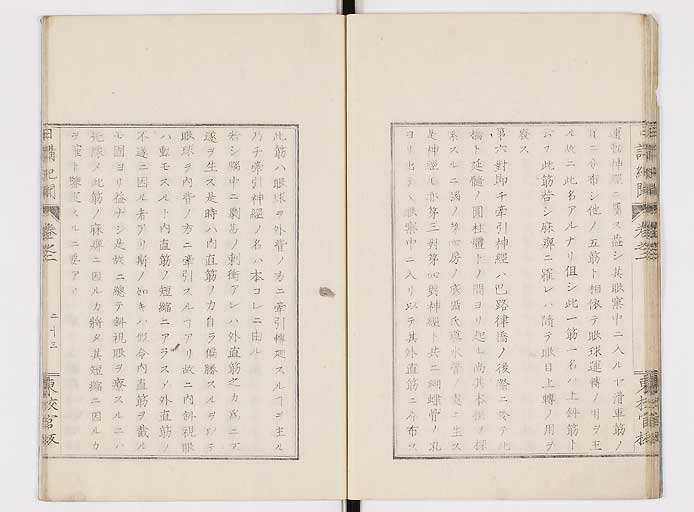 運動神経ニ属ス蓋シ其眼窠中ニ入ルヤ滑車筋ノ
ミニ分布シ他ノ五筋ト相依テ眼球運轉ノ用ヲ主
ル故ニ此名アルナリ但シ此一筋一名ハ上斜筋ト
云フ此筋若シ麻痺ニ罹レハ隨テ眼目上轉ノ用ヲ
廢ス
第六對即チ牽引神經ハ巴路律橋ノ後際ニ於テ此
橋ト延髓ノ圓柱體トノ間ヨリ起ル尚其本根ヲ探
索スルニ腦ノ第四房ノ底
是神經モ亦第三對第四對神經ト共ニ蝴蝶骨ノ孔
ヨリ出テ眼窠中ニ入リ以テ其外直筋ニ分布ス
此筋ハ眼球ヲ外眥ノ方ニ牽引轉廻スルヿヲ主ル
乃チ牽引神經ノ名ハ本コレニ由ル
若シ腦中ニ劇甚ノ刺衝アレハ外直筋之カ爲ニ不
遂ヲ生ス是時ハ内直筋ノ力自ラ偏勝スルヲ以テ
眼球ヲ内眥ノ方ニ牽引スルヿアリ故ニ内斜視眼
ハ動モスレハ内直筋ノ短縮ニアラスメ外直筋ノ
不遂ニ因ル者アリ斯ノ如キハ假令内直筋ヲ截ル
モ固ヨリ益ナシ是故ニ總テ斜視眼ヲ療スルニハ
先ツ此筋ノ麻痺ニ因ルカ將タ其短縮ニ因ルカ
ヲ
日講紀聞
卷之二
二十三
東校官版